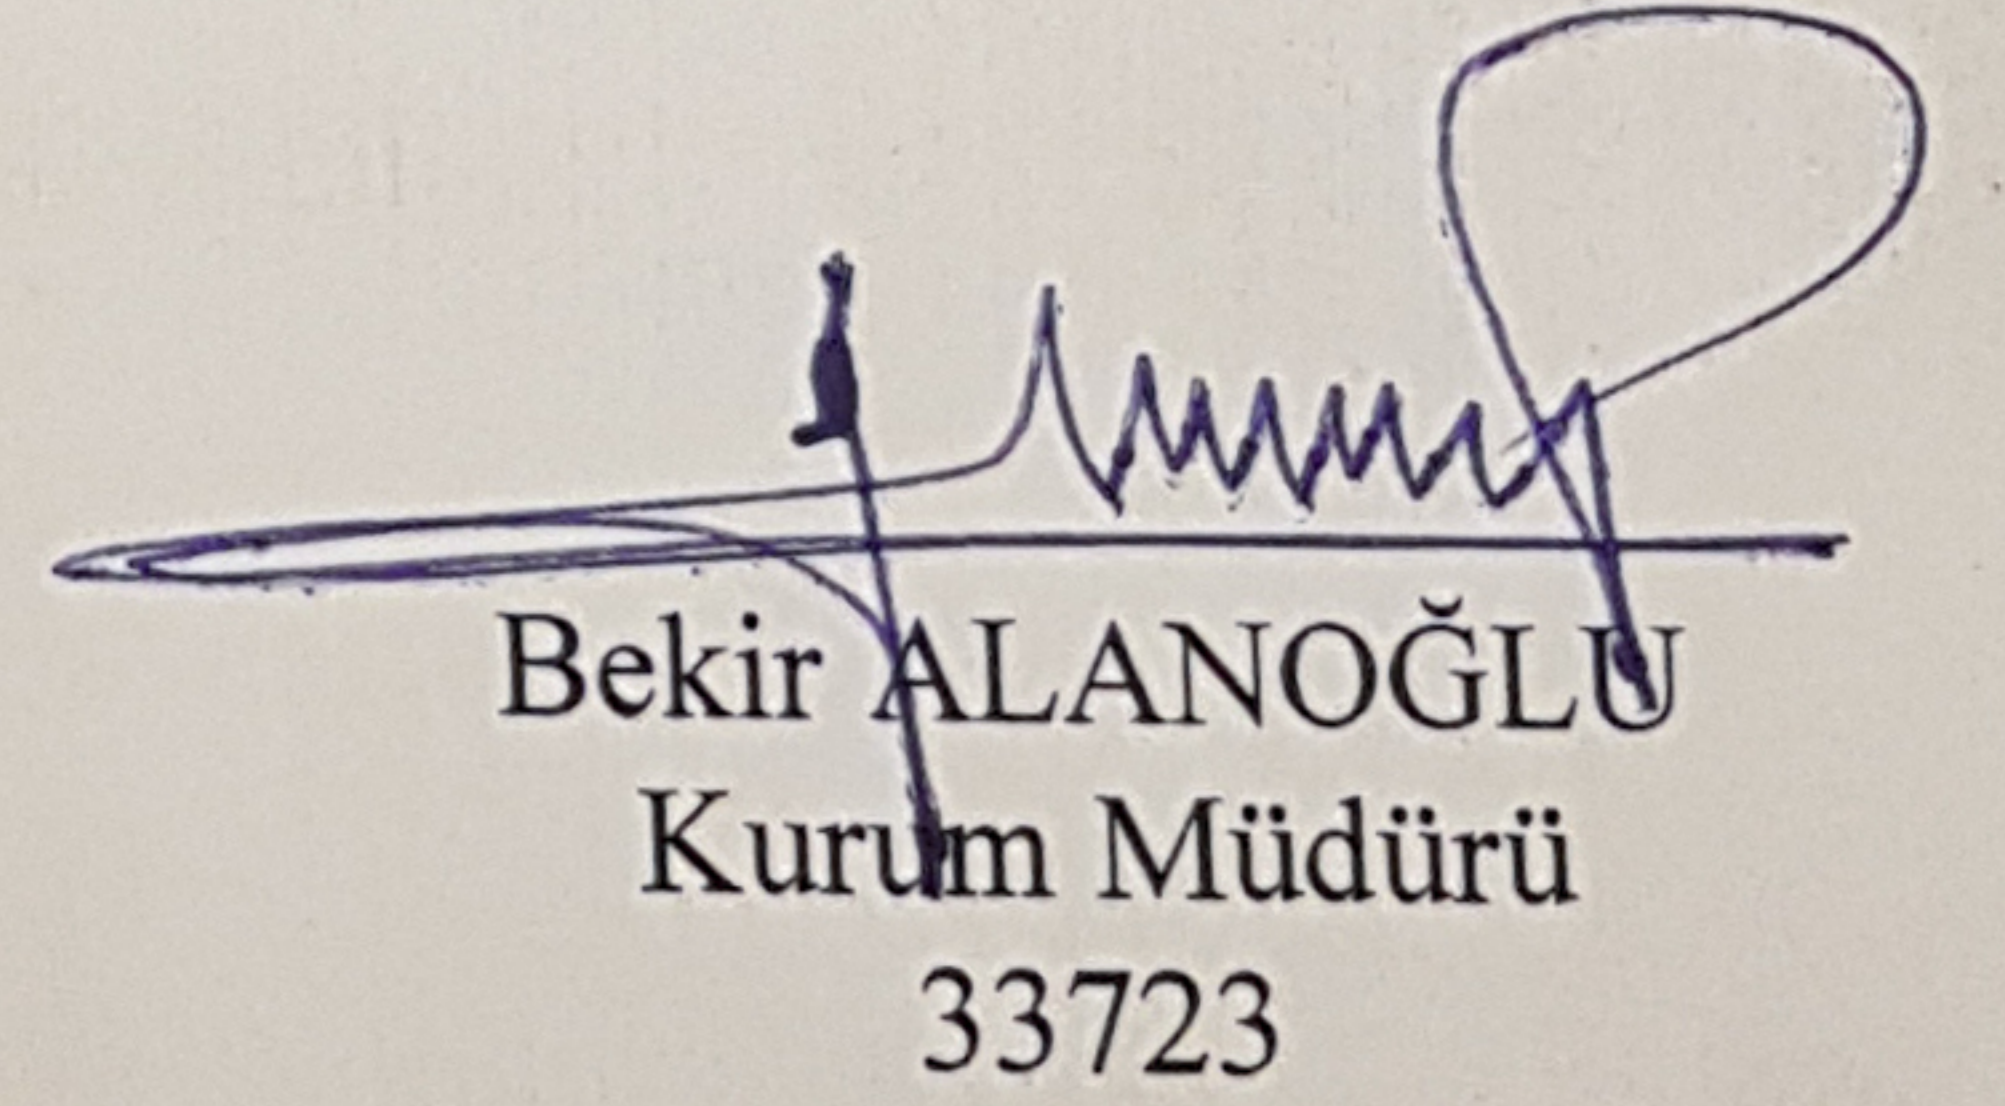 Bekir ALANOĞLU
Kurum Müdürü
33723